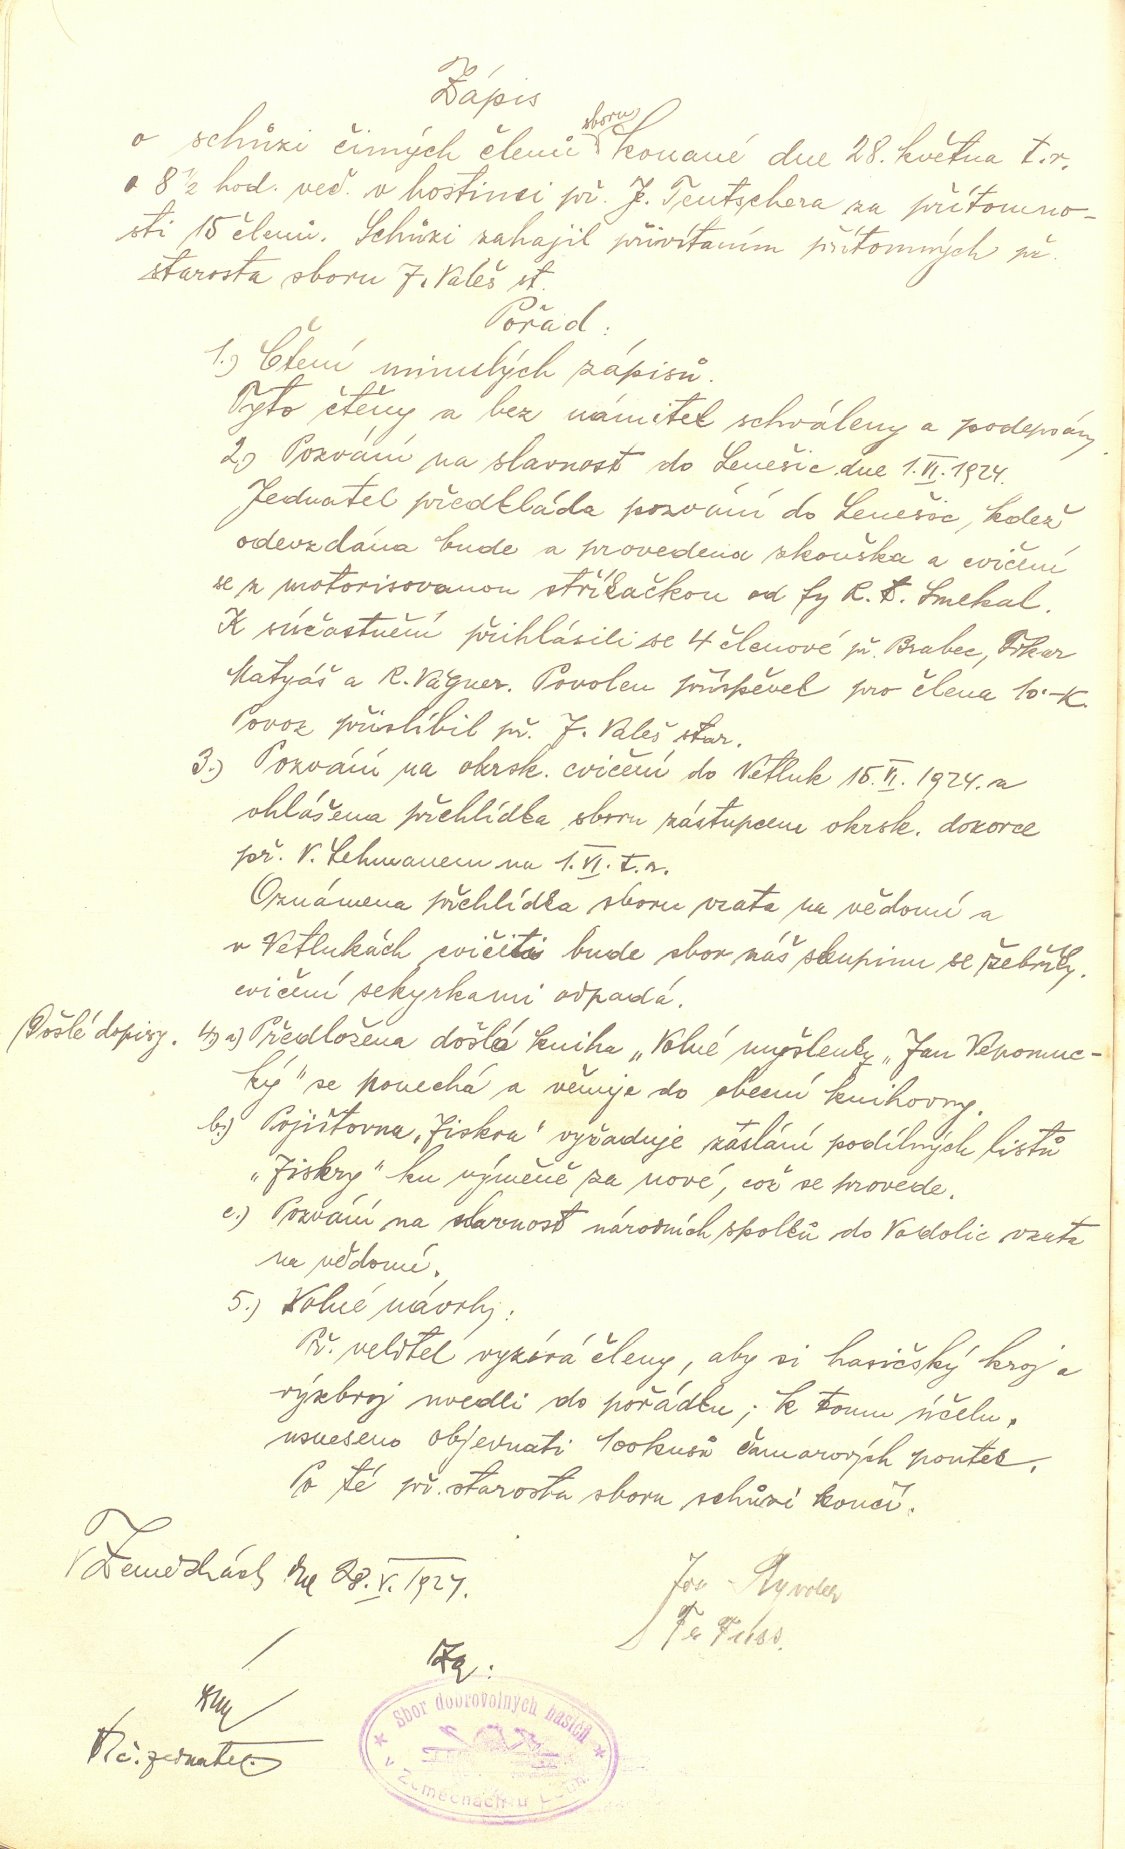 Zápis
o schůzi činých členů sboru konané dne 28. května t.r.
o 8 1/2 hod. več. v hostinci př. J. Teutschera za přítomno-
sti 15 členů. Schůzi zahajil přivítaním přítomných př.
starosta sboru J. Valeš st.
Pořad:
1.) Čtení minulých zápisů.
Tyto čteny a bez námitek schváleny a podepsány.
2.) Pozvání na slavnost do Lenešic dne 1.VI.1924.
Jednatel předkláda pozvání do Lenešic, kdež
odevzdána bude a provedena zkouška a cvičení
se z motorisovanou stříkačkou od fy R. t. Smekal.
K súčastnění přihlásili se 4 členové př. Brabec,
Matyáš a R. Vágner. Povolen příspěvek pro člena 10·-K.
Povoz přislíbil př. J. Valeš star.
3.) Pozvání na okrsk. cvičení do Netluk 15.VI.1924. a
ohlášena přehlídka sboru zástupcem okrsk. dozorce
př. V. Lehmanem na 1.VI. t.r.
Oznámena přehlídka sboru vzata na vědomí a
v Netlukách cvičiti bude sbor náš skupinu se žebříky,
cvičení sekyrkami odpadá.
Došlé dopisy. 4) a) Předložena došlá kniha „Volné myšlenky „Jan Nepomuc-
ký" se ponechá a věnuje do obecní knihovny.
b.) Pojišťovna „Jiskra" vyžaduje zaslání podílných listů
„Jiskry" ku výměně za nové, což se provede.
c.) Pozvání na slavnost národních spolků do Vodolic vzata
na vědomí.
5.) Volné návrhy:
Př. velitel vyzívá členy, aby si hasičský kroj a
výzbroj uvedli do pořádku; k tomu účelu,
usneseno objednati 100 kusů čamarových poutek.
Po té př. starosta sboru schůzi končí.
V Zeměchách dne 28.V.1924.
Jos
Fr
Za:
Sbor dobrovolných hasičů
v Zeměchách u Loun
t.č. jednatel